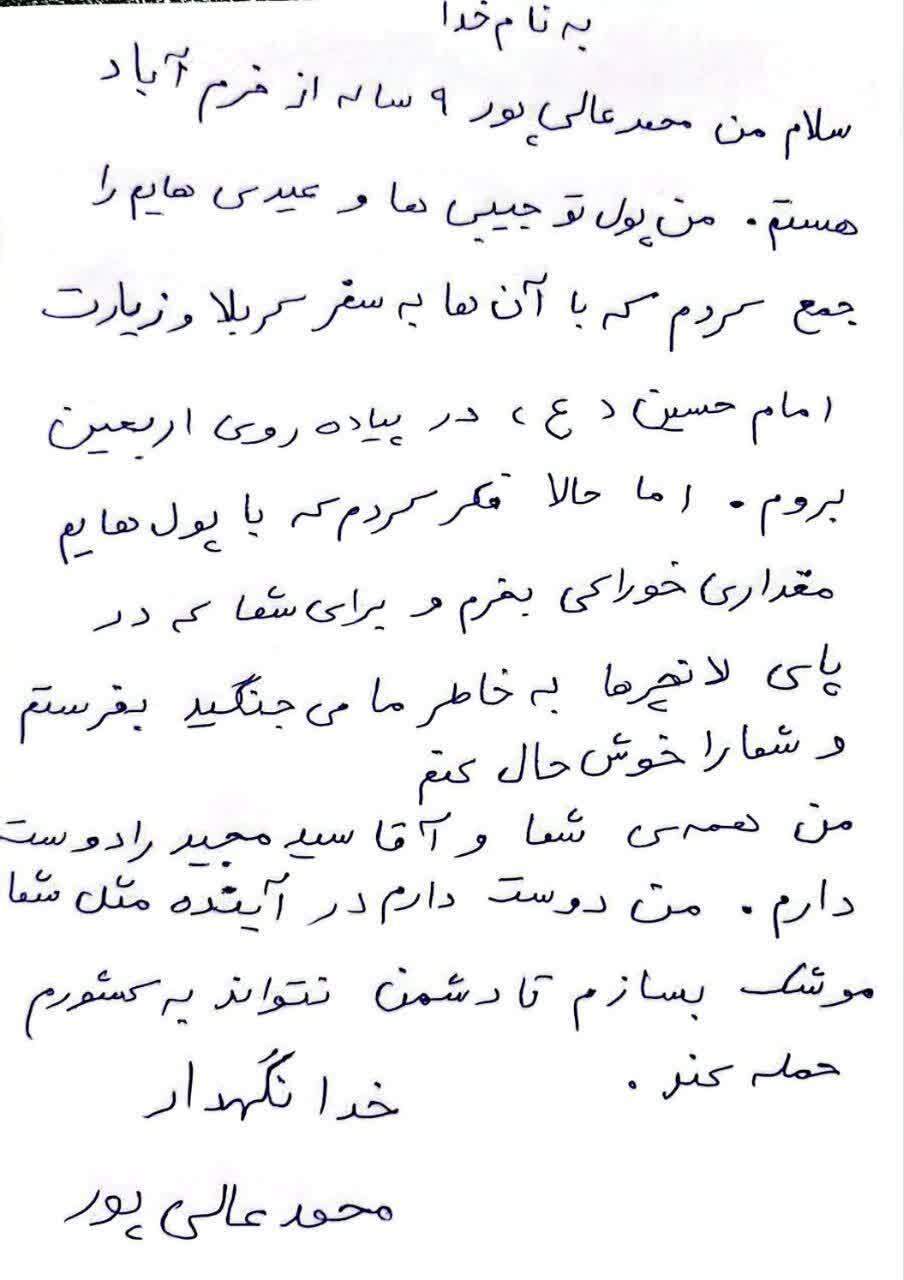 به نام خدا
سلام من محمد عالی پور ۹ ساله از خرم آباد
هستم. من پول تو جیبی ها و عیدی هایم را
جمع کردم که با آن ها به سفر کربلا و زیارت
امام حسین (ع) در پیاده روی اربعین
بروم. اما حالا فکر کردم که با پول هایم
مقداری خوراکی بخرم و برای شما که در
پای لانچرها به خاطر ما می جنگید بفرستم
و شما را خوش حال کنم
من همه‌ی شما و آقا سید مجید را دوست
دارم. من دوست دارم در آینده مثل شما
موشک بسازم تا دشمن نتواند به کشورم
حمله کند.
خدا نگهدار
محمد عالی پور